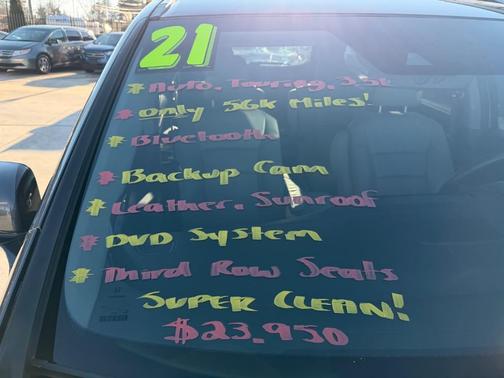 21
* Auto, Touring, 3.5L
* Only 56k Miles!
* Bluetooth
* Backup Cam
* Leather, Sunroof
* DVD System
* Third Row Seats
SUPER CLEAN!
$23,950